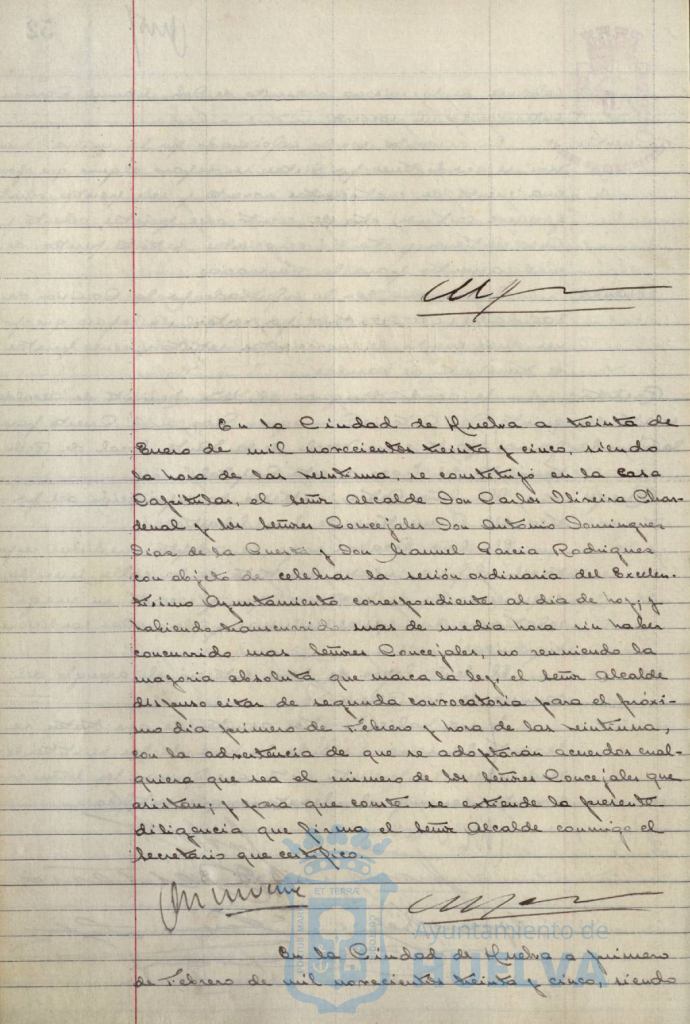 En la Ciudad de Huelva a treinta de
Enero de mil novecientos treinta y cinco, siendo
la hora de las veintiuna, se constituyó en la Casa
Capitular, el Señor Alcalde Don Carlos Oliveira Chardenal y los Señores Concejales Don Antonio Dominguez
Diaz de la Cuesta y Don Manuel Garcia Rodriguez
con objeto de celebrar la sesión ordinaria del Excelen-
tisimo Ayuntamiento correspondiente al dia de hoy; y
habiendo transcurrido mas de media hora sin haber
concurrido mas Señores Concejales, no reuniendo la
mayoria absoluta que marca la ley, el Señor Alcalde
dispuso citar de segunda convocatoria para el próxi-
mo dia primero de Febrero y hora de las veintiuna,
con la advertencia de que se adoptarán acuerdos cual-
quiera que sea el número de los Señores Concejales que
asistan; y para que conste se extiende la presente
diligencia que firma el Señor Alcalde conmigo el
Secretario que certifico.
Ayuntamiento de
HUELVA
En la Ciudad de Huelva a primero
de Febrero de mil novecientos treinta y cinco, siendo